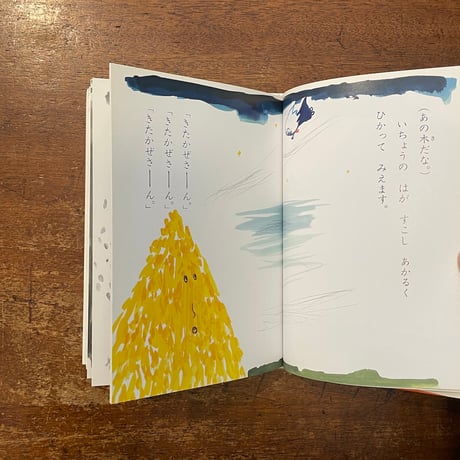 (あの木だな。)
いちょうの はが すこし あかるく
ひかって みえます。
「きたかぜさーーん。」
「きたかぜさーーん。」
「きたかぜさーーん。」